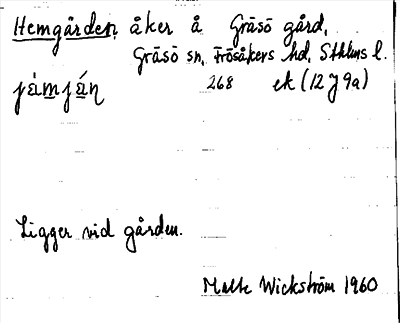 Hemgården, åker å Gräsö gård,
Gräsö sn, Frösåkers hd, Sthlms l.
268 ek (12 J 9a)
Ligger vid gården.
Malte Wickström 1960